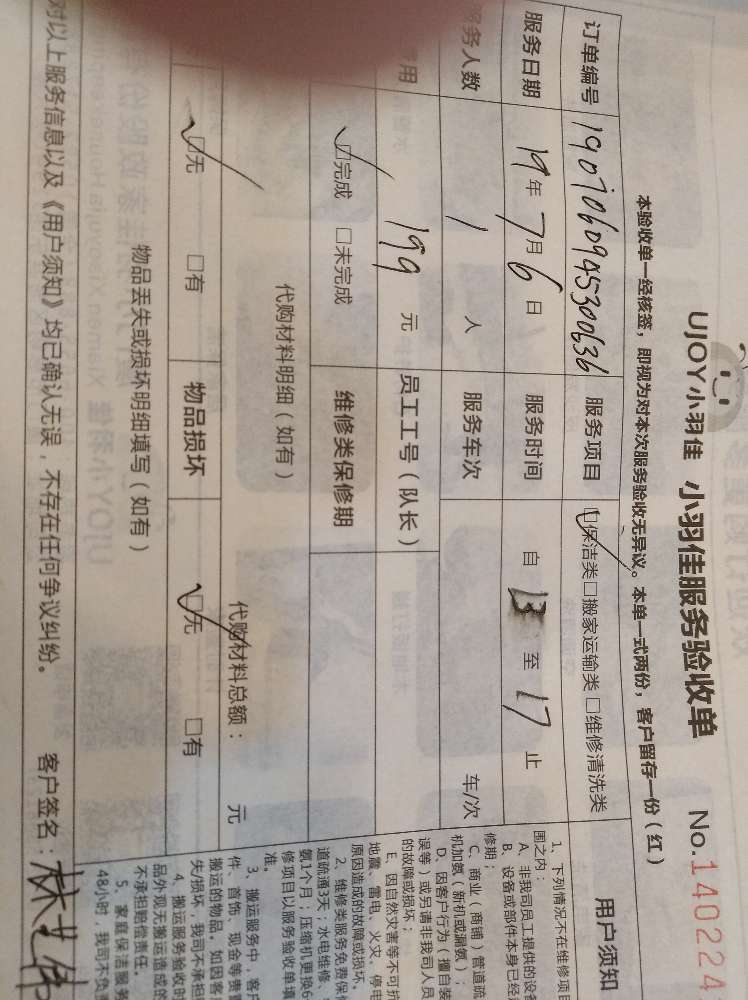 UJOY小羽佳 小羽佳服务验收单 No.140224
本验收单一经核签，即视为对本次服务验收无异议。本单一式两份，客户留存一份（红）
订单编号 190706094530063б 服务项目 ☑保洁类□搬家运输类 □维修清洗类
服务日期 19年7月6日 服务时间 自 13 至 17 止
务人数 1 人 服务车次 车/次
用 199 元 员工工号（队长）
☑完成 □未完成 维修类保修期
代购材料明细（如有） 代购材料总额： 元
☑无 □有 物品损坏 ☑无 □有
物品丢失或损坏明细填写（如有）
对以上服务信息以及《用户须知》均已确认无误，不存在任何争议纠纷。 客户签名：林艺伟
用户须知
1、下列情况不在维修项目
围之内：
A、非我司员工提供的设备
B、设备或部件本身已经
修期；
C、商业（商铺）管道疏
机加氨（新机或漏氨）；
D、因客户行为（擅自装
误等）或另请非我司人员
的故障或损坏；
E、因自然灾害等不可抗
地震、雷电、火灾、停电
原因造成的故障或损坏。
2、维修类服务免费保
道疏通3天；水电维修、
氨1个月；压缩机更换6
修项目以服务验收单填
准。
3、搬运服务中，客户
件、首饰、现金等费
搬运的物品。如因客
失/损坏，我司不承担
4、搬运服务验收时
品外观无搬运造成的
不承担赔偿责任。
5、家庭保洁服务
48小时，我司不负